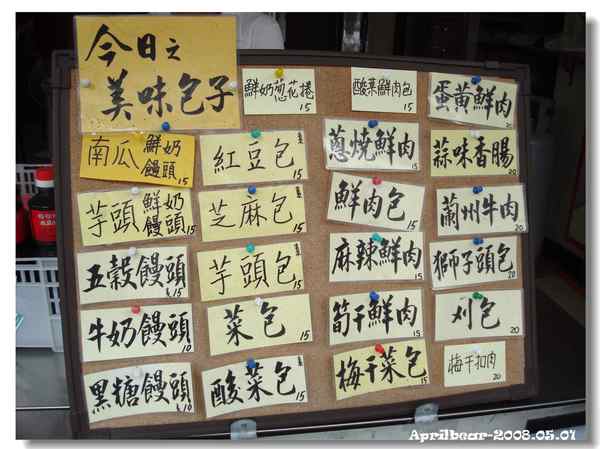 今日之
美味包子
鮮奶蔥花捲
15
酸菜鮮肉包
15
蛋黃鮮肉
20
南瓜鮮奶饅頭
15
紅豆包
15
蔥燒鮮肉
15
蒜味香腸
20
芋頭鮮奶饅頭
15
芝麻包
15
鮮肉包
15
蘭州牛肉
20
五穀饅頭
15
芋頭包
15
麻辣鮮肉
15
獅子頭包
20
牛奶饅頭
10
菜包
15
筍干鮮肉
15
刈包
20
黑糖饅頭
10
酸菜包
15
梅干菜包
15
梅干扣肉
20
Aprilbear-2008.05.01